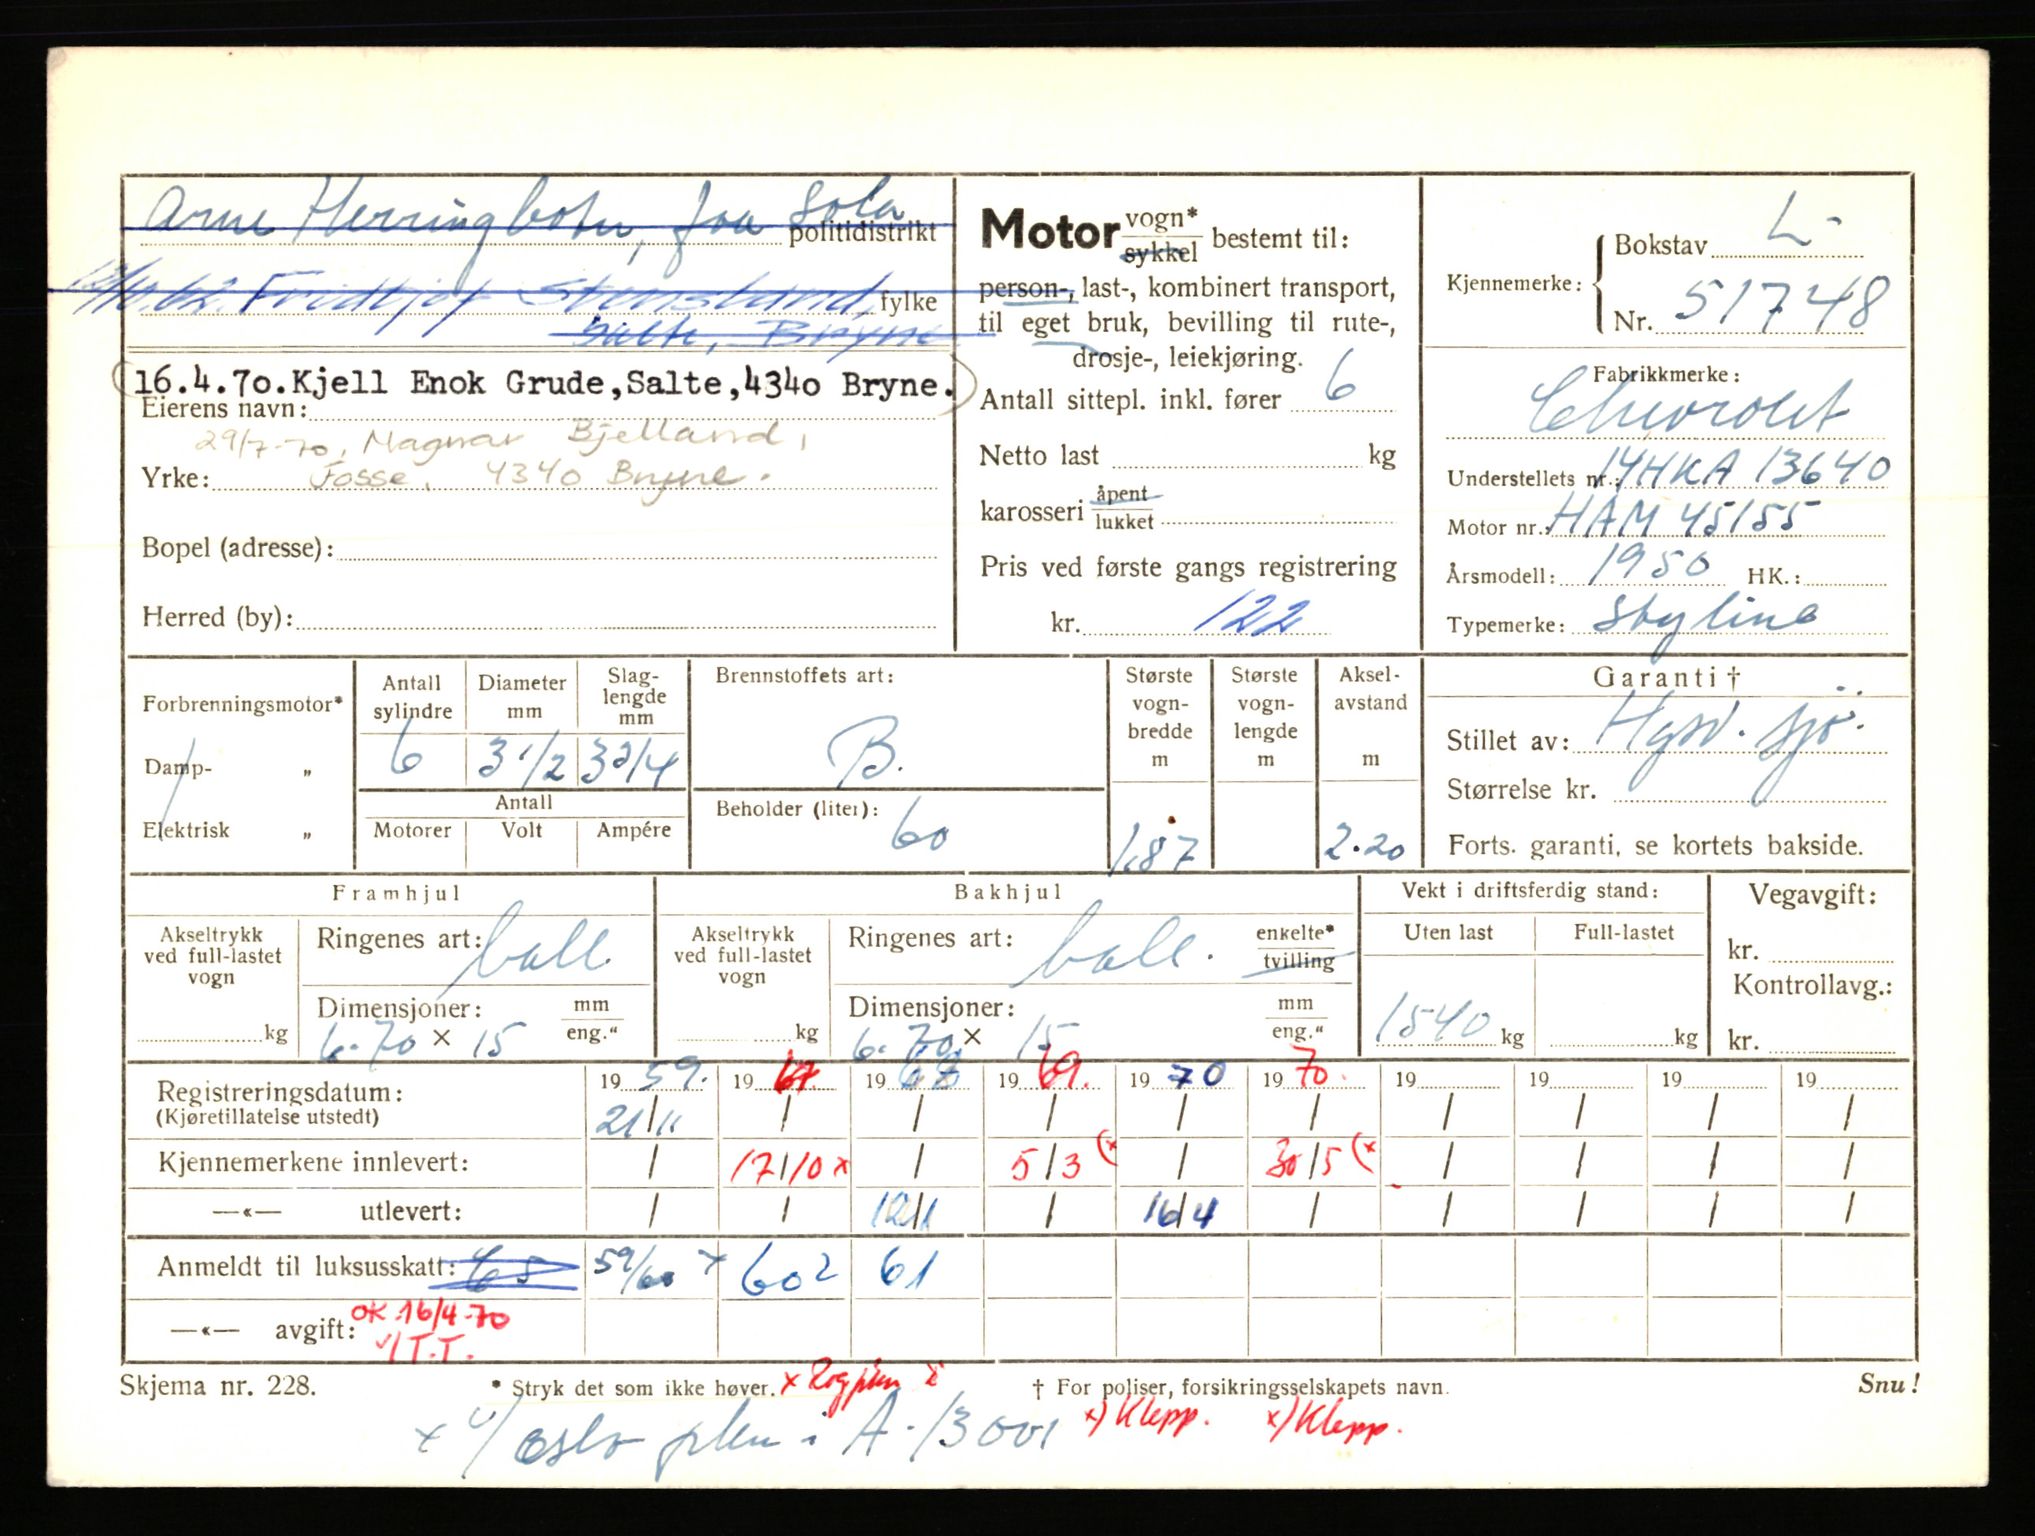 Arne Herringbotn, foa Sola
politidistrikt
Fridtjof Stensland, fylke
Salte, Bryne
16.4.70.Kjell Enok Grude,Salte,4340 Bryne.
Eierens navn:
29/7-70, Magnar Bjelland,
Yrke: Fosse, 4340 Bryne.
Bopel (adresse):
Herred (by):
Motor vogn* / sykkel bestemt til:
person-, last-, kombinert transport,
til eget bruk, bevilling til rute-,
drosje-, leiekjøring.
Antall sittepl. inkl. fører 6
Netto last kg
karosseri åpent / lukket
Pris ved første gangs registrering
kr. 122
Kjennemerke: Bokstav L-
Nr. 51748
Fabrikkmerke:
Chevrolet
Understellets nr.: 14HKA 13640
Motor nr.: HAM 45155
Årsmodell: 1950 HK.:
Typemerke: Styline
Forbrenningsmotor*
Damp- „
Elektrisk „
Antall sylindre 6
Diameter mm 3 1/2
Slag-lengde mm 3 3/4
Antall
Motorer Volt Ampére
Brennstoffets art:
B.
Beholder (liter):
60
Største vogn-bredde m 1.87
Største vogn-lengde m
Aksel-avstand m 2.20
Garanti †
Stillet av:
Størrelse kr.
Forts. garanti, se kortets bakside.
Framhjul
Akseltrykk ved full-lastet vogn kg
Ringenes art: ball
Dimensjoner: mm / eng."
6.70 × 15
Bakhjul
Akseltrykk ved full-lastet vogn kg
Ringenes art: ball. enkelte* / tvilling
Dimensjoner: mm / eng."
6.70 × 15
Vekt i driftsferdig stand:
Uten last Full-lastet
1540 kg kg
Vegavgift:
kr.
Kontrollavg.:
kr.
Registreringsdatum: 19 59. 19 67. 19 68 19 69. 19 70 19 70. 19 19 19 19
(Kjøretillatelse utstedt) 21/11 / / / / / / / / /
Kjennemerkene innlevert: / 17/10 x / 5/3 (x / 30/5 (x / / / /
—«— utlevert: / / 12/1 / 16/4 / / / / /
Anmeldt til luksusskatt: 65 59/60 x 602 61
—«— avgift: OK 16/4-70
v/T.T.
Skjema nr. 228. * Stryk det som ikke høver. x Rog pkn † For poliser, forsikringsselskapets navn. Snu!
x v/ Oslo pkn i A-13001 x) Klepp. x) Klepp.